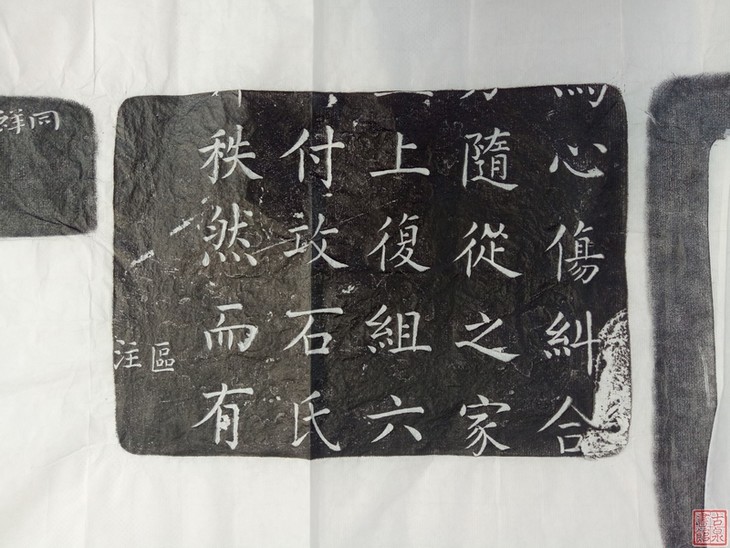 心傷糾合
隨從之家
上復組六
付攻石氏
秩然而有
區
注
同